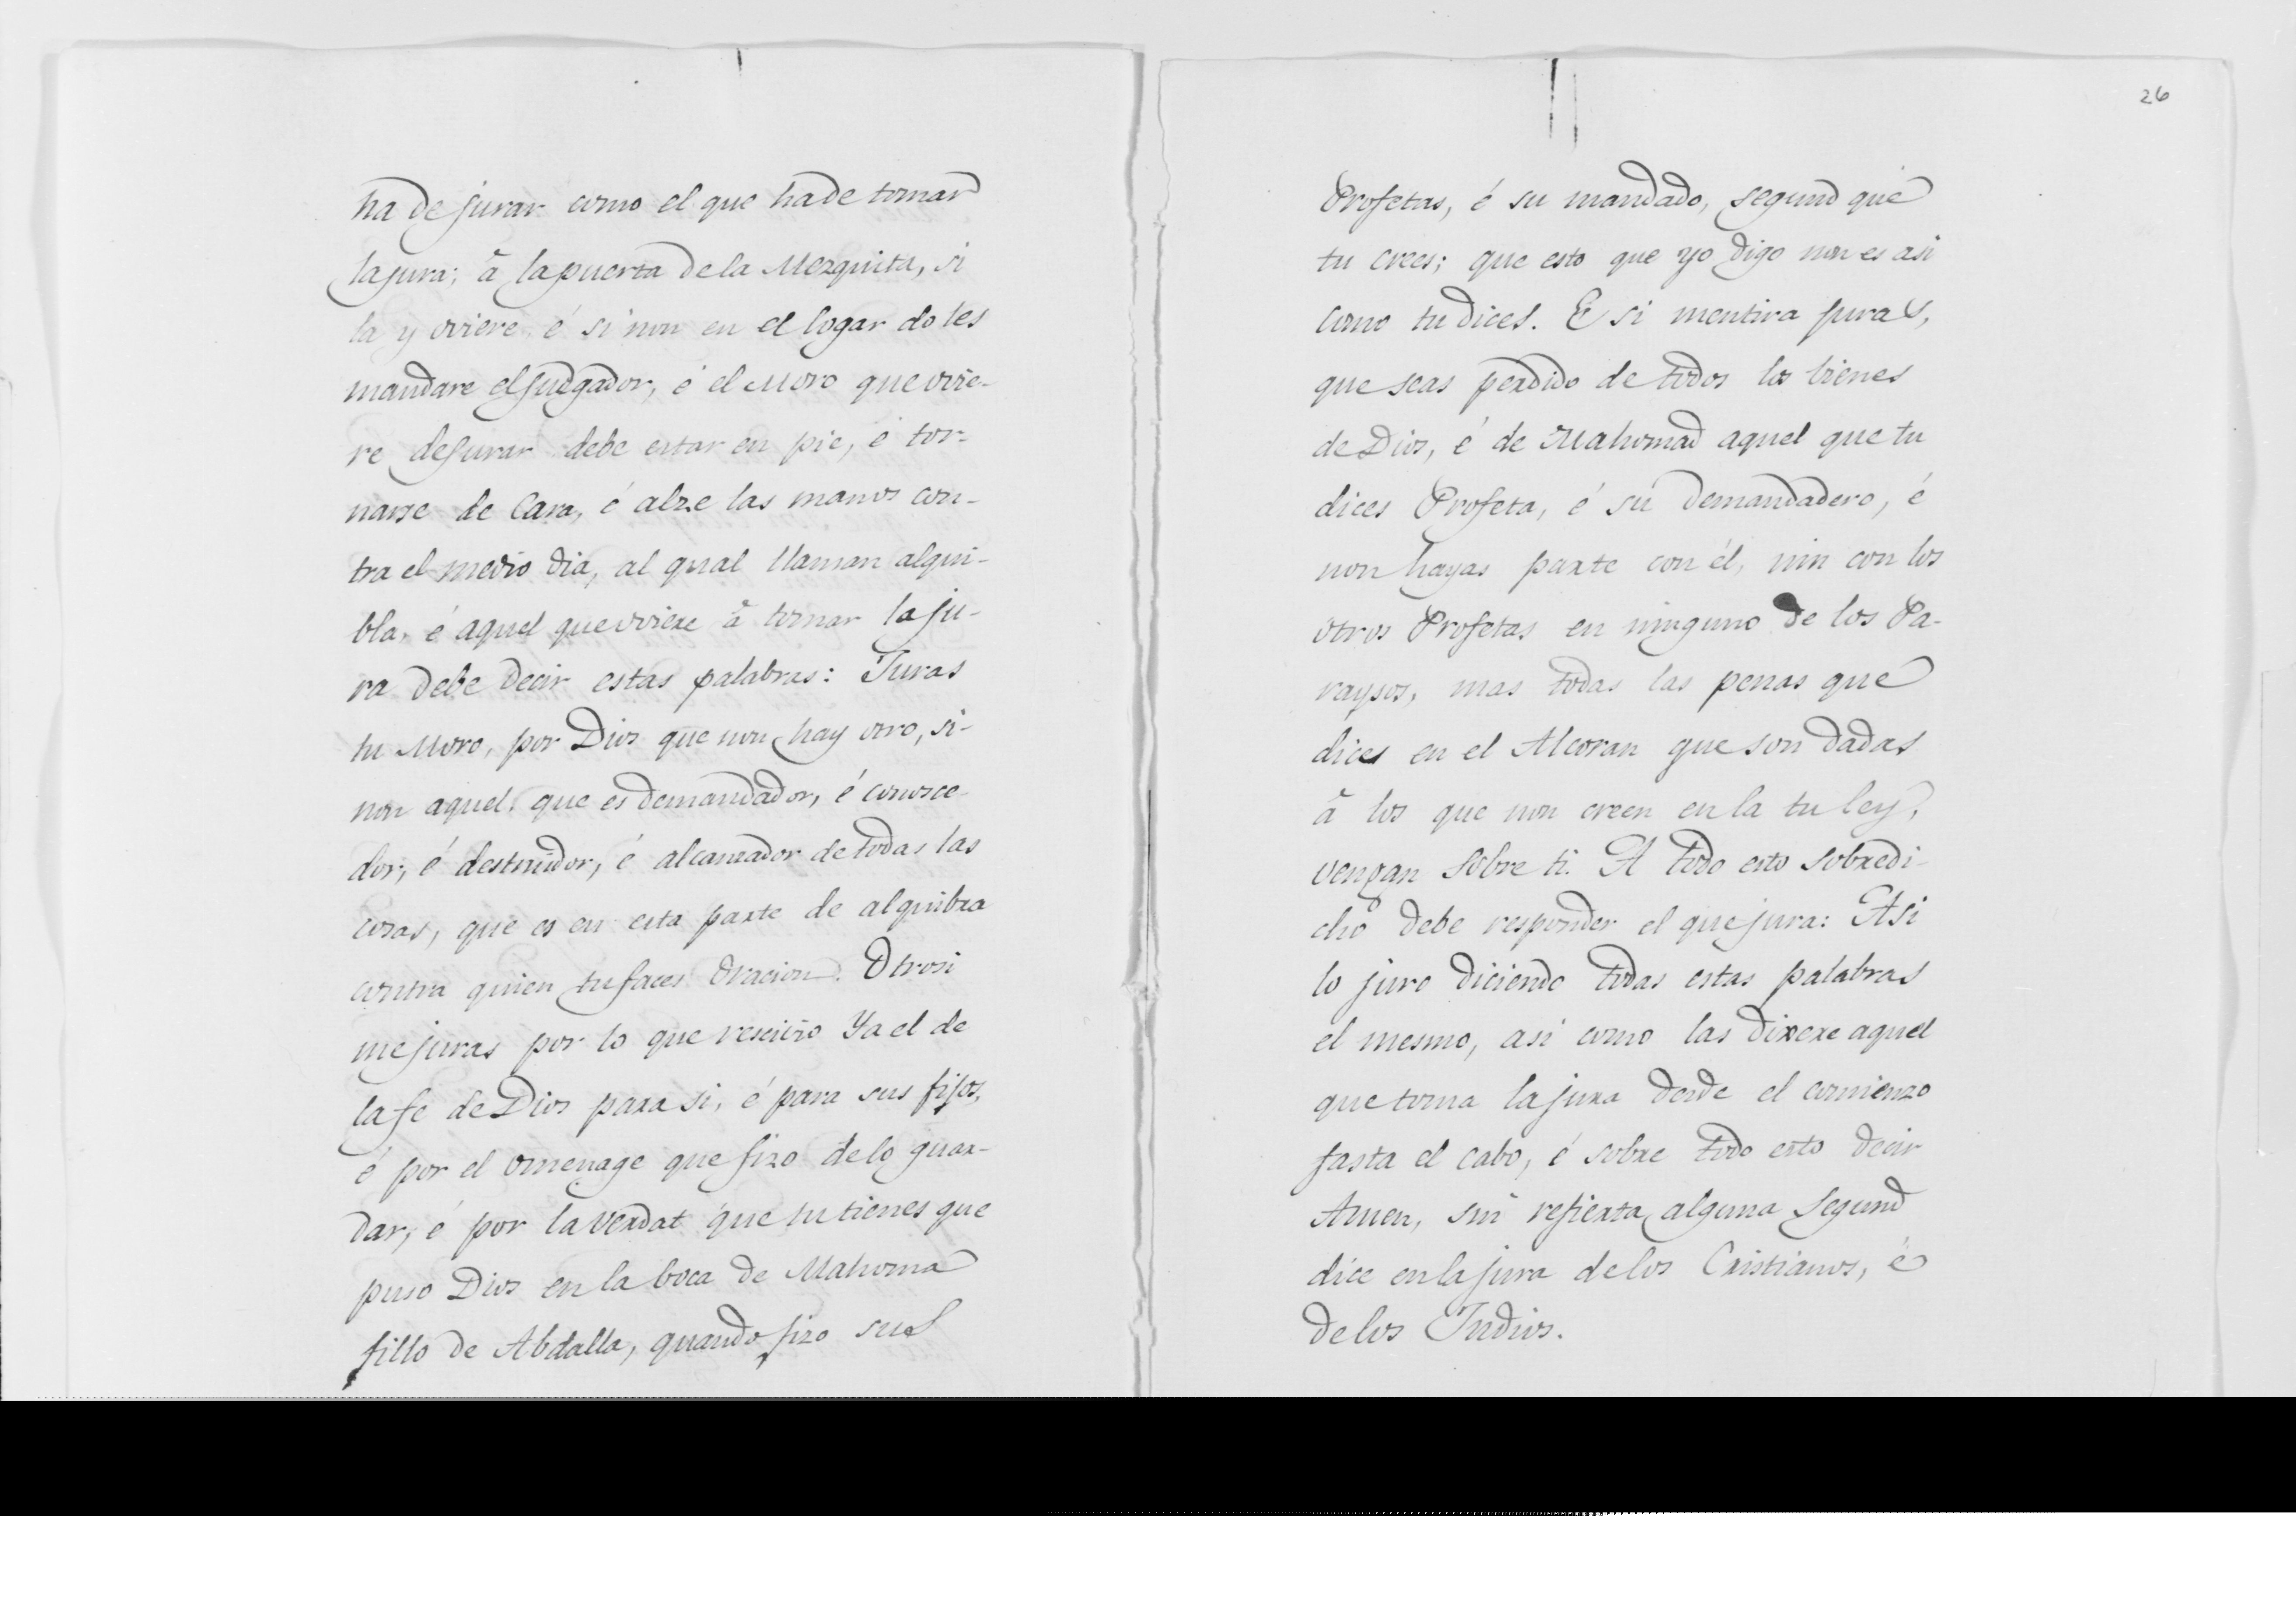 ha de jurar como el que ha de tomar
la jura; à la puerta de la Mezquita, si
la y oviere é si non en el logar do les
mandare el Judgador, é el Moro que ovie-
re de Jurar debe estar en pie, é tor-
narse de Cara, é alze las manos con-
tra el medio dia, al qual llaman alqui-
bla, é aquel que oviere à tomar la ju-
ra debe decir estas palabras: Juras
tu Moro, por Dios que non hay otro, si-
non aquel, que es demandador, é conosce-
dor, é destruidor, é alcanzador de todas las
cosas, que es en esta parte de alquibra
contra quien tu faces Oracion. Otrosi
me juras por lo que rescivio Ya el de
la fe de Dios para si, é para sus fijos,
é por el omenage que fizo de lo guar-
dar, é por la verdat que tu tienes que
puso Dios en la boca de Mahoma
fillo de Abdalla, quando fizo sus
26
Profetas, é su mandado, segund que
tu crees; que esto que yo digo non es asi
como tu dices. E si mentira juras,
que seas perdido de todos los bienes
de Dios, é de Mahomad aquel que tu
dices Profeta, é su demandadero, é
non hayas parte con él, nin con los
otros Profetas en ninguno de los Pa-
raysos, mas todas las penas que
dices en el Alcoran que son dadas
à los que non creen en la tu ley,
vengan sobre ti. A todo esto sobredi-
cho debe responder el que jura: Asi
lo juro diciendo todas estas palabras
el mesmo, asi como las dixere aquel
que toma la jura desde el comienzo
fasta el cabo, é sobre todo esto decir
Amen, sin refierta alguna segund
dice en la jura de los Cristianos, é
de los Judios.